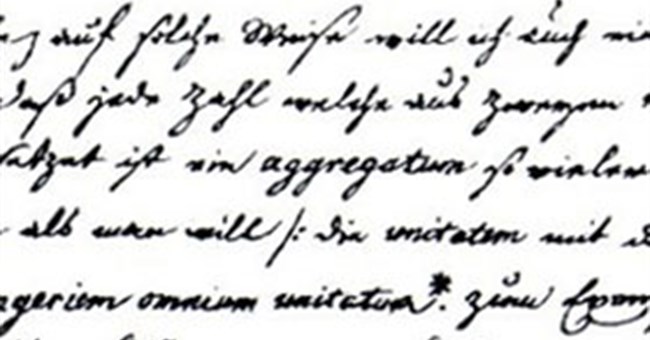 auf solche Weise will ich auch ei
daß jede Zahl welche aus zweyen
setzet ist ein aggregatum so vieler
als man will /: die unitatem mit d
ngeriem omnium unitatum*. zum Exem